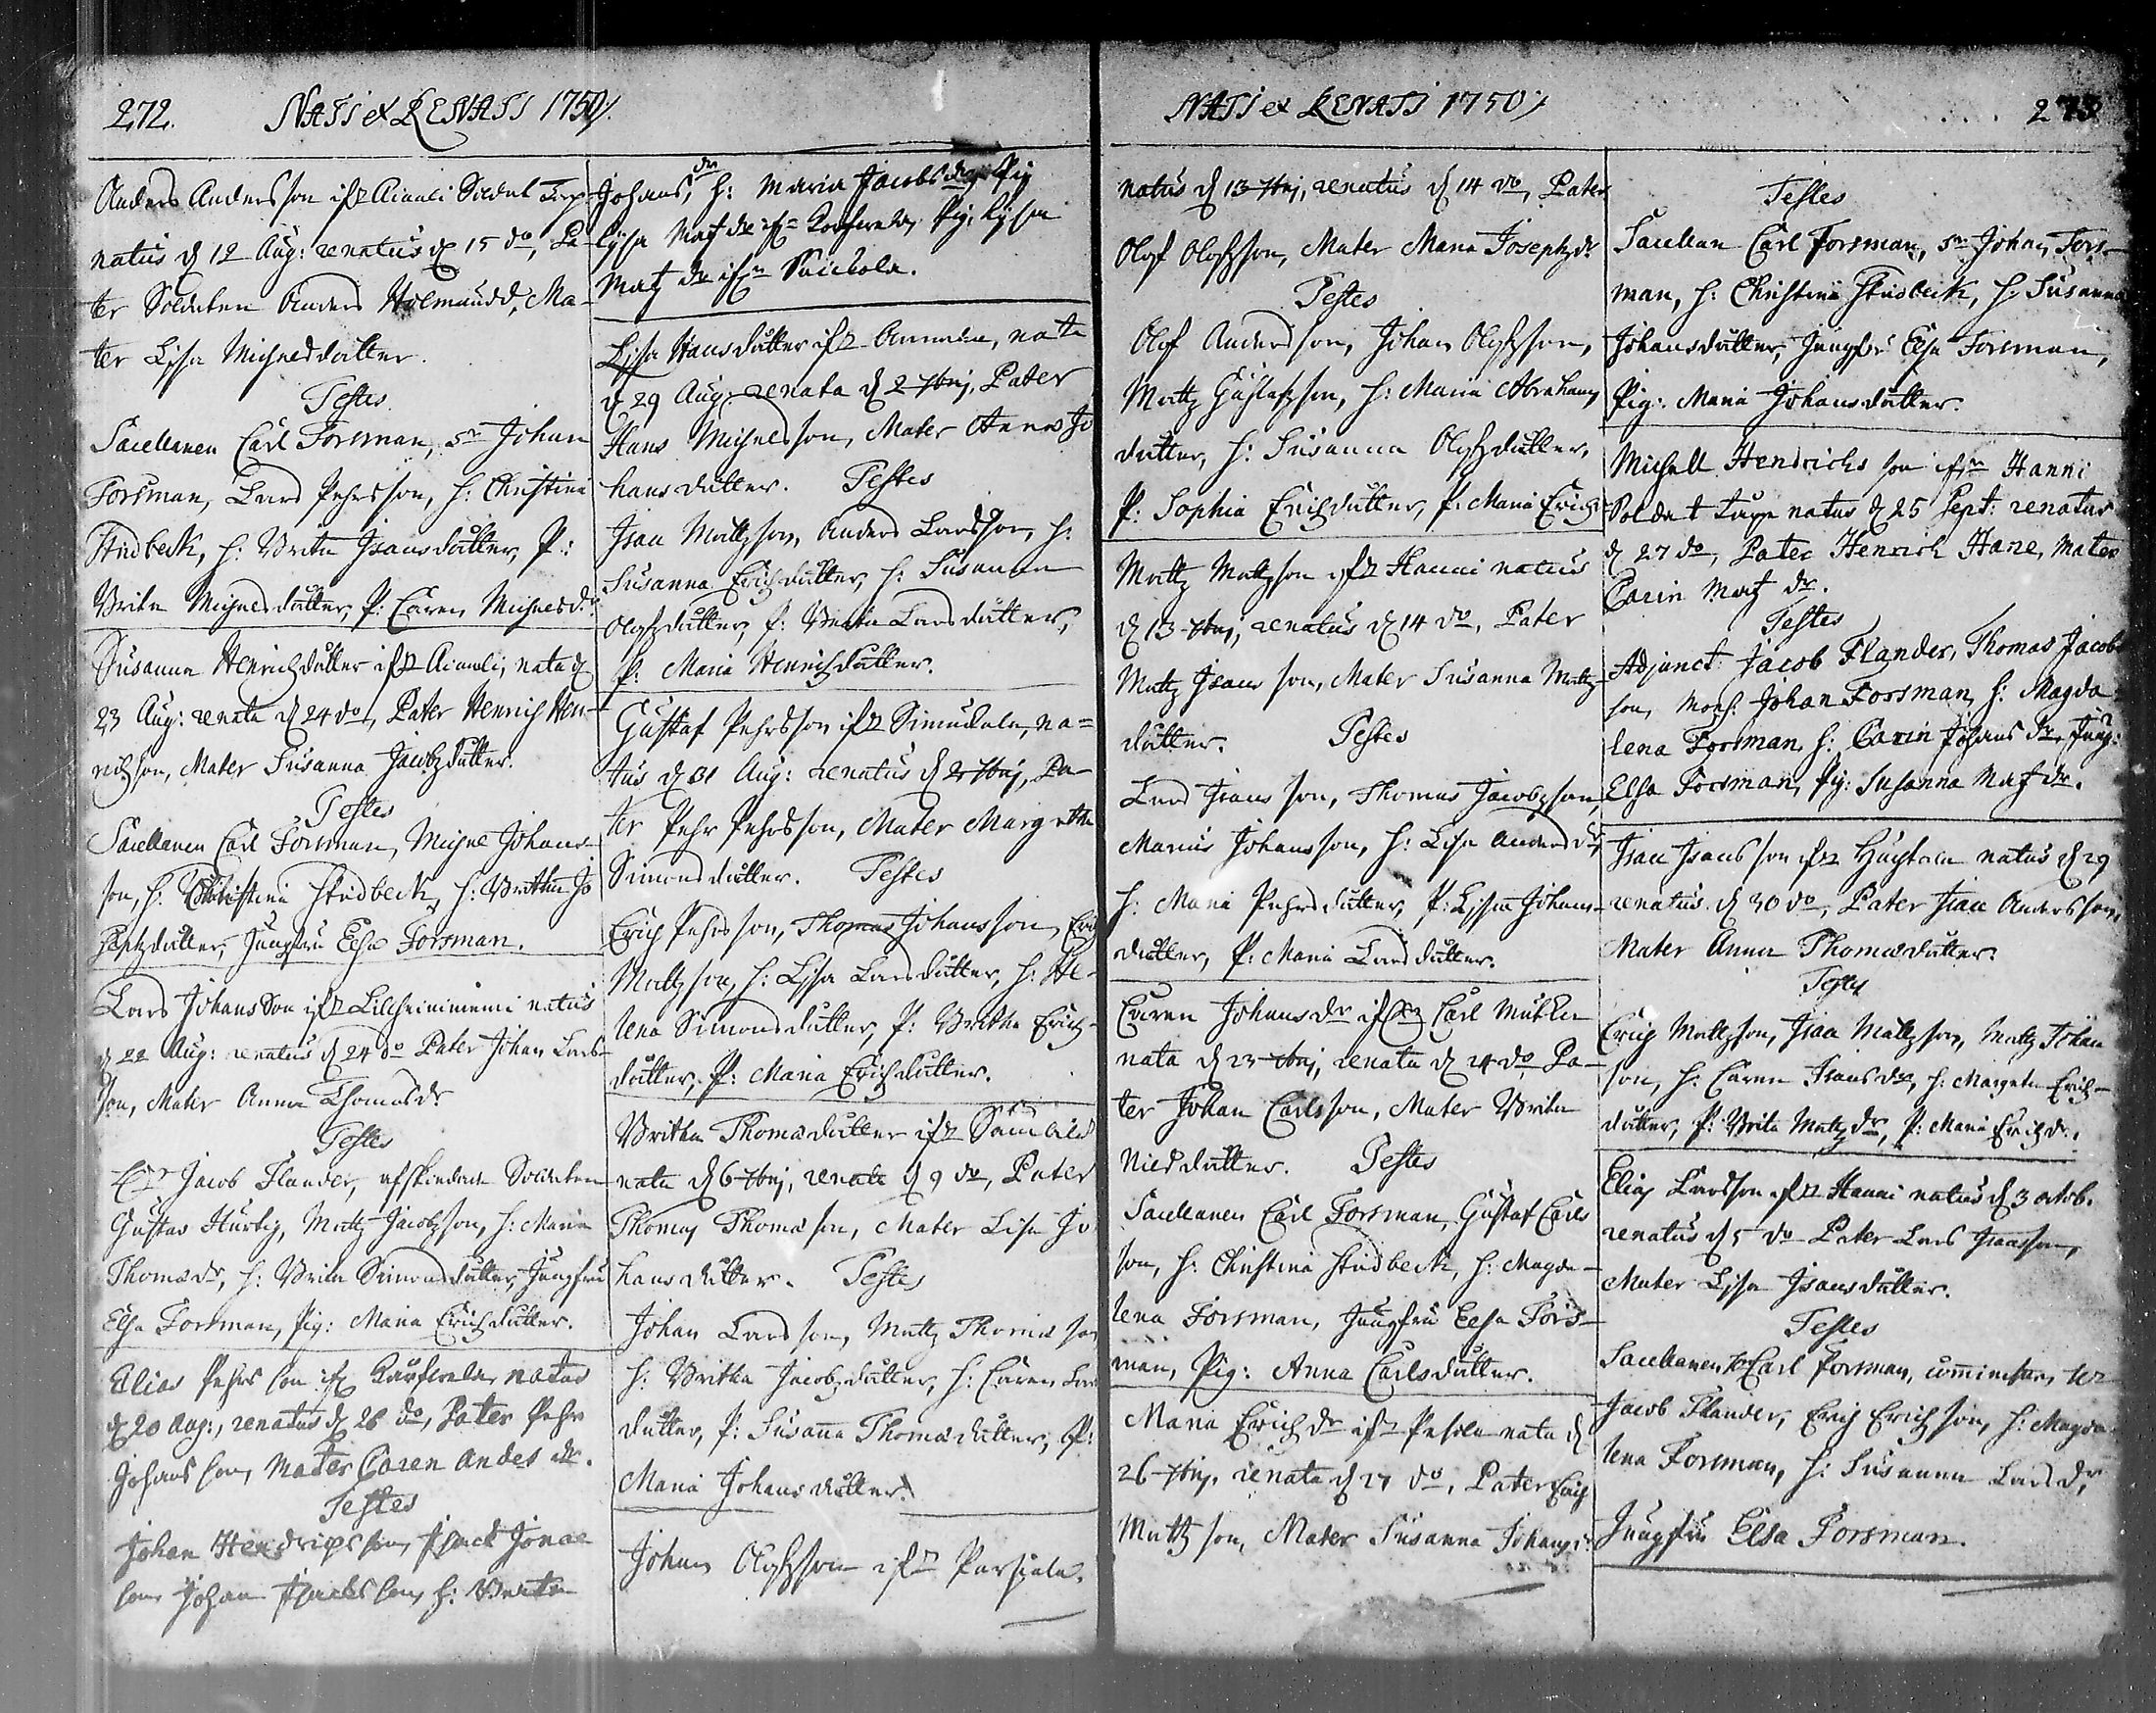 272. NATI et RENATI 1750/.
Anders Andersson ifrn Aiuali Soldat Torp
natus d 12 Aug: renatus d 15 do, Pa-
ter Soldaten Anders Holmsudd, Ma-
ter Lisa Michelsdåtter.
Testes
Sacellanen Carl Forsman, Sn Johan
Forsman, Lars Pehrsson, h: Christina
Stridbeck, h: Brita Isansdåtter, P:
Brita Michelsdåtter, P: Caren Michelsdr
Susanna Henrichdåtter ifrn Aiuali, nata d
23 Aug: renata d 24 do, Pater Henrich Hen-
richson, Mater Susanna Jacobzdåtter.
Testes
Sacellanen Carl Forsman, Michel Johans-
son, h: Christina Stridbeck, h: Britha Jo
sephzdåtter, Jungfru Elsa Forsman.
Lars Johansson ifrn Lillheiniemi natus
d 22 Aug: renatus d 24 do Pater Johan Lars-
son, Mater Anna Thomasdr
Testes
Jacob Flander, afskiedade Soldaten
Gustav Hurtig, Mattz Jacobzson, h: Maria
Thomædr, h: Brita Simonsdåtter, Jungfru
Elsa Forsman, Pig: Maria Erichzdåtter.
Elias Pehrs son ifrn natus
d 20 Aug:, renatus d 26 do, Pater Pehr
Johans son, Mater Caren Anders dr.
Testes
Johan Hendrichs son, Isack Jonæ
son Johan son, h: Breita
Johans dr, h: Maria Jacobs dr, Pig
Lisa Matz dr ifrn Pig: Lisa
Matz dr ifrn
Lisa Hansdåtter ifrn nata
d 29 Aug: renata d 2 7brij, Pater
Hans Michelsson, Mater Anna Jo
hansdåtter. Testes
Isaa Mattzson, Anders Larsson, h:
Susanna Erichdåtter, h: Susanna
Olofzdåtter, P: Breita Larsdåtter,
P: Maria Henrichdåtter.
Gustaf Pehrsson ifrn Simukala, na=
tus d 31 Aug: renatus d 2 7brij, Pa-
ter Pehr Pehrsson, Mater Margretha
Simonsdåtter. Testes
Erich Pehrsson, Thomas Johansson, Erich
Mattzson, h: Lisa Larsdåtter, h: He-
lena Simonsdåtter, P: Britha Erich-
dåtter, P: Maria Erichdåtter.
Britha Thomædåtter ifrn
nata d 6 7brij, renata d 9 do, Pater
Thomas Thomæson, Mater Lisa Jo
hansdåtter. Testes
Johan Larsson, Mattz Thomæ son
h: Britha Jacobzdåtter, h: Caren Lars
dåtter, P: Susana Thomædåtter, P:
Maria Johansdåtter.
Johan Olofzson ifrn
NATI et RENATI 1750/. 273
natus d 13 7brij, renatus d 14 do, Pater
Olof Olofzson, Mater Maria Josephzdr
Testes
Olof Andersson, Johan Olofzson,
Mattz Gustafzson, h: Maria Abrahams
dåtter, h: Susanna Olofzdåtter,
P: Sophia Erichdåtter, P: Maria Erich
Mattz Mattzson ifrn Hanni natus
d 13 7brij, renatus d 14 do, Pater
Mattz Isaus son, Mater Susanna Mattz
dåtter. Testes
Lars Isaus son, Thomas Jacobzson,
Marcus Johansson, h: Lisa Andersdr,
h: Maria Pehrsdåtter, P: Lisa Johans-
dåtter, P: Maria Larsdåtter.
Caren Johansdr ifrn Carl
nata d 23 7brij, renata d 24 do, Pa-
ter Johan Carlsson, Mater Brita
Nilsdåtter. Testes
Sacellanen Carl Forsman, Gustaf Carls
son, h: Christina Stridbeck, h: Magda-
lena Forsman, Jungfru Elsa Fors-
man, Pig: Anna Carlsdåtter.
Maria Erich dr ifrn nata d
26 7brij, renata d 27 do, Pater Erich
Mattzson, Mater Susanna Johansdr
Testes
Sacellan Carl Forsman, Sn Johan Fors-
man, h: Christina Stridbeck, h: Susanna
Johansdåtter, Jungfru Elsa Forsman,
Pig: Maria Johansdåtter.
Michell Hendrichs son ifrn Hanni
Soldat torp natus d 25 Sept: renatus
d 27 do, Pater Henrich Hane, Mater
Carin Matz dr.
Testes
Adjunct: Jacob Flander, Thomas Jacobs
son, Mons. Johan Forsman, h: Magda
lena Forsman, h: Carin Johans dr, Jung:
Elsa Forsman, Pig: Susanna Matz dr.
Isaac Isaus son ifrn natus d 29
renatus d 30 do, Pater Isaac Andersson,
Mater Anna Thomædåtter.
Testes
Erich Mattzson, Isaa Mattzson, Mattz Johan
son, h: Caren Isaus dr, h: Margeta Erich-
dåtter, P: Brita Mattz dr, P: Maria Erich dr.
Elias Larsson ifrn Hanni natus d 3 octob.
renatus d 5 do Pater Lars Isausson,
Mater Lisa Isausdåtter.
Testes
Sacellanen Carl Forsman,
Jacob Flander, Erich Erichson, h: Magda
lena Forsman, h: Susanna Lars dr,
Jungfru Elsa Forsman.